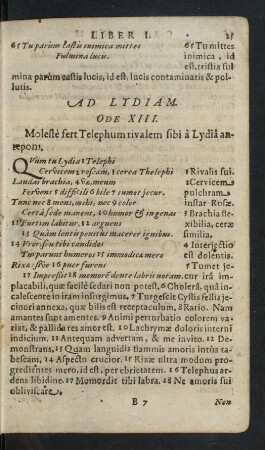 LIBER I. 25
65 Tu parum castis inimica mittes
Fulmina lucis.
65 Tu mittes
inimica, id
est, tristia ful
mina parum castis lucis, id est, lucis contaminatis & pol-
lutis.
AD LYDIAM.
ODE XIII.
Molestè fert Telephum rivalem sibi à Lydiâ an-
teponi.
QVum tu Lydia 1 Telephi
Cervicem 2 roseam, 3 cerea Thelephi
Laudas brachia, 4 væ, meum
Fervens 5 difficili 6 bile 7 tumet jecur.
Tunc nec 8 mens, mihi, nec 9 color
Certâ sede manent, 10 humor & in genas
11 Furtim labitur, 12 arguens
13 Quàm lentis penitus macerer ignibus.
14 Vror, seu tibi candidos
Turparunt humeros 15 immodicæ mero
Rixæ: sive 16 puer furens
17 Impressit 18 memorem dente labris notam.
1 Rivalis sui.
2 Cervicem
pulchram
instar Rosæ.
3 Brachia fle-
xibilia, ceræ
similia.
4 Interjectio
est dolentis.
5 Tumet je-
cur irâ im-
placabili, quæ facilè sedari non potest. 6 Cholerâ, quâ in-
calescente in iram insurgimus. 7 Turgescit Cystis fellis je-
cinori annexa, quæ bilis est receptaculum. 8 Ratio. Nam
amantes sunt amentes. 9 Animi perturbatio colorem va-
riat, & pallida res amor est. 10 Lachrymæ doloris interni
indicium. 11 Antequam advertam, & me invito. 12 De-
monstrans. 13 Quàm languidis flammis amoris intùs ta-
bescam. 14 Aspectu crucior. 15 Rixæ ultra modum pro-
gredientes mero, id est, per ebrietatem. 16 Telephus ar-
dens libidine. 17 Momordit tibi labra. 18 Ne amoris sui
obliviscare.
B 7 Non